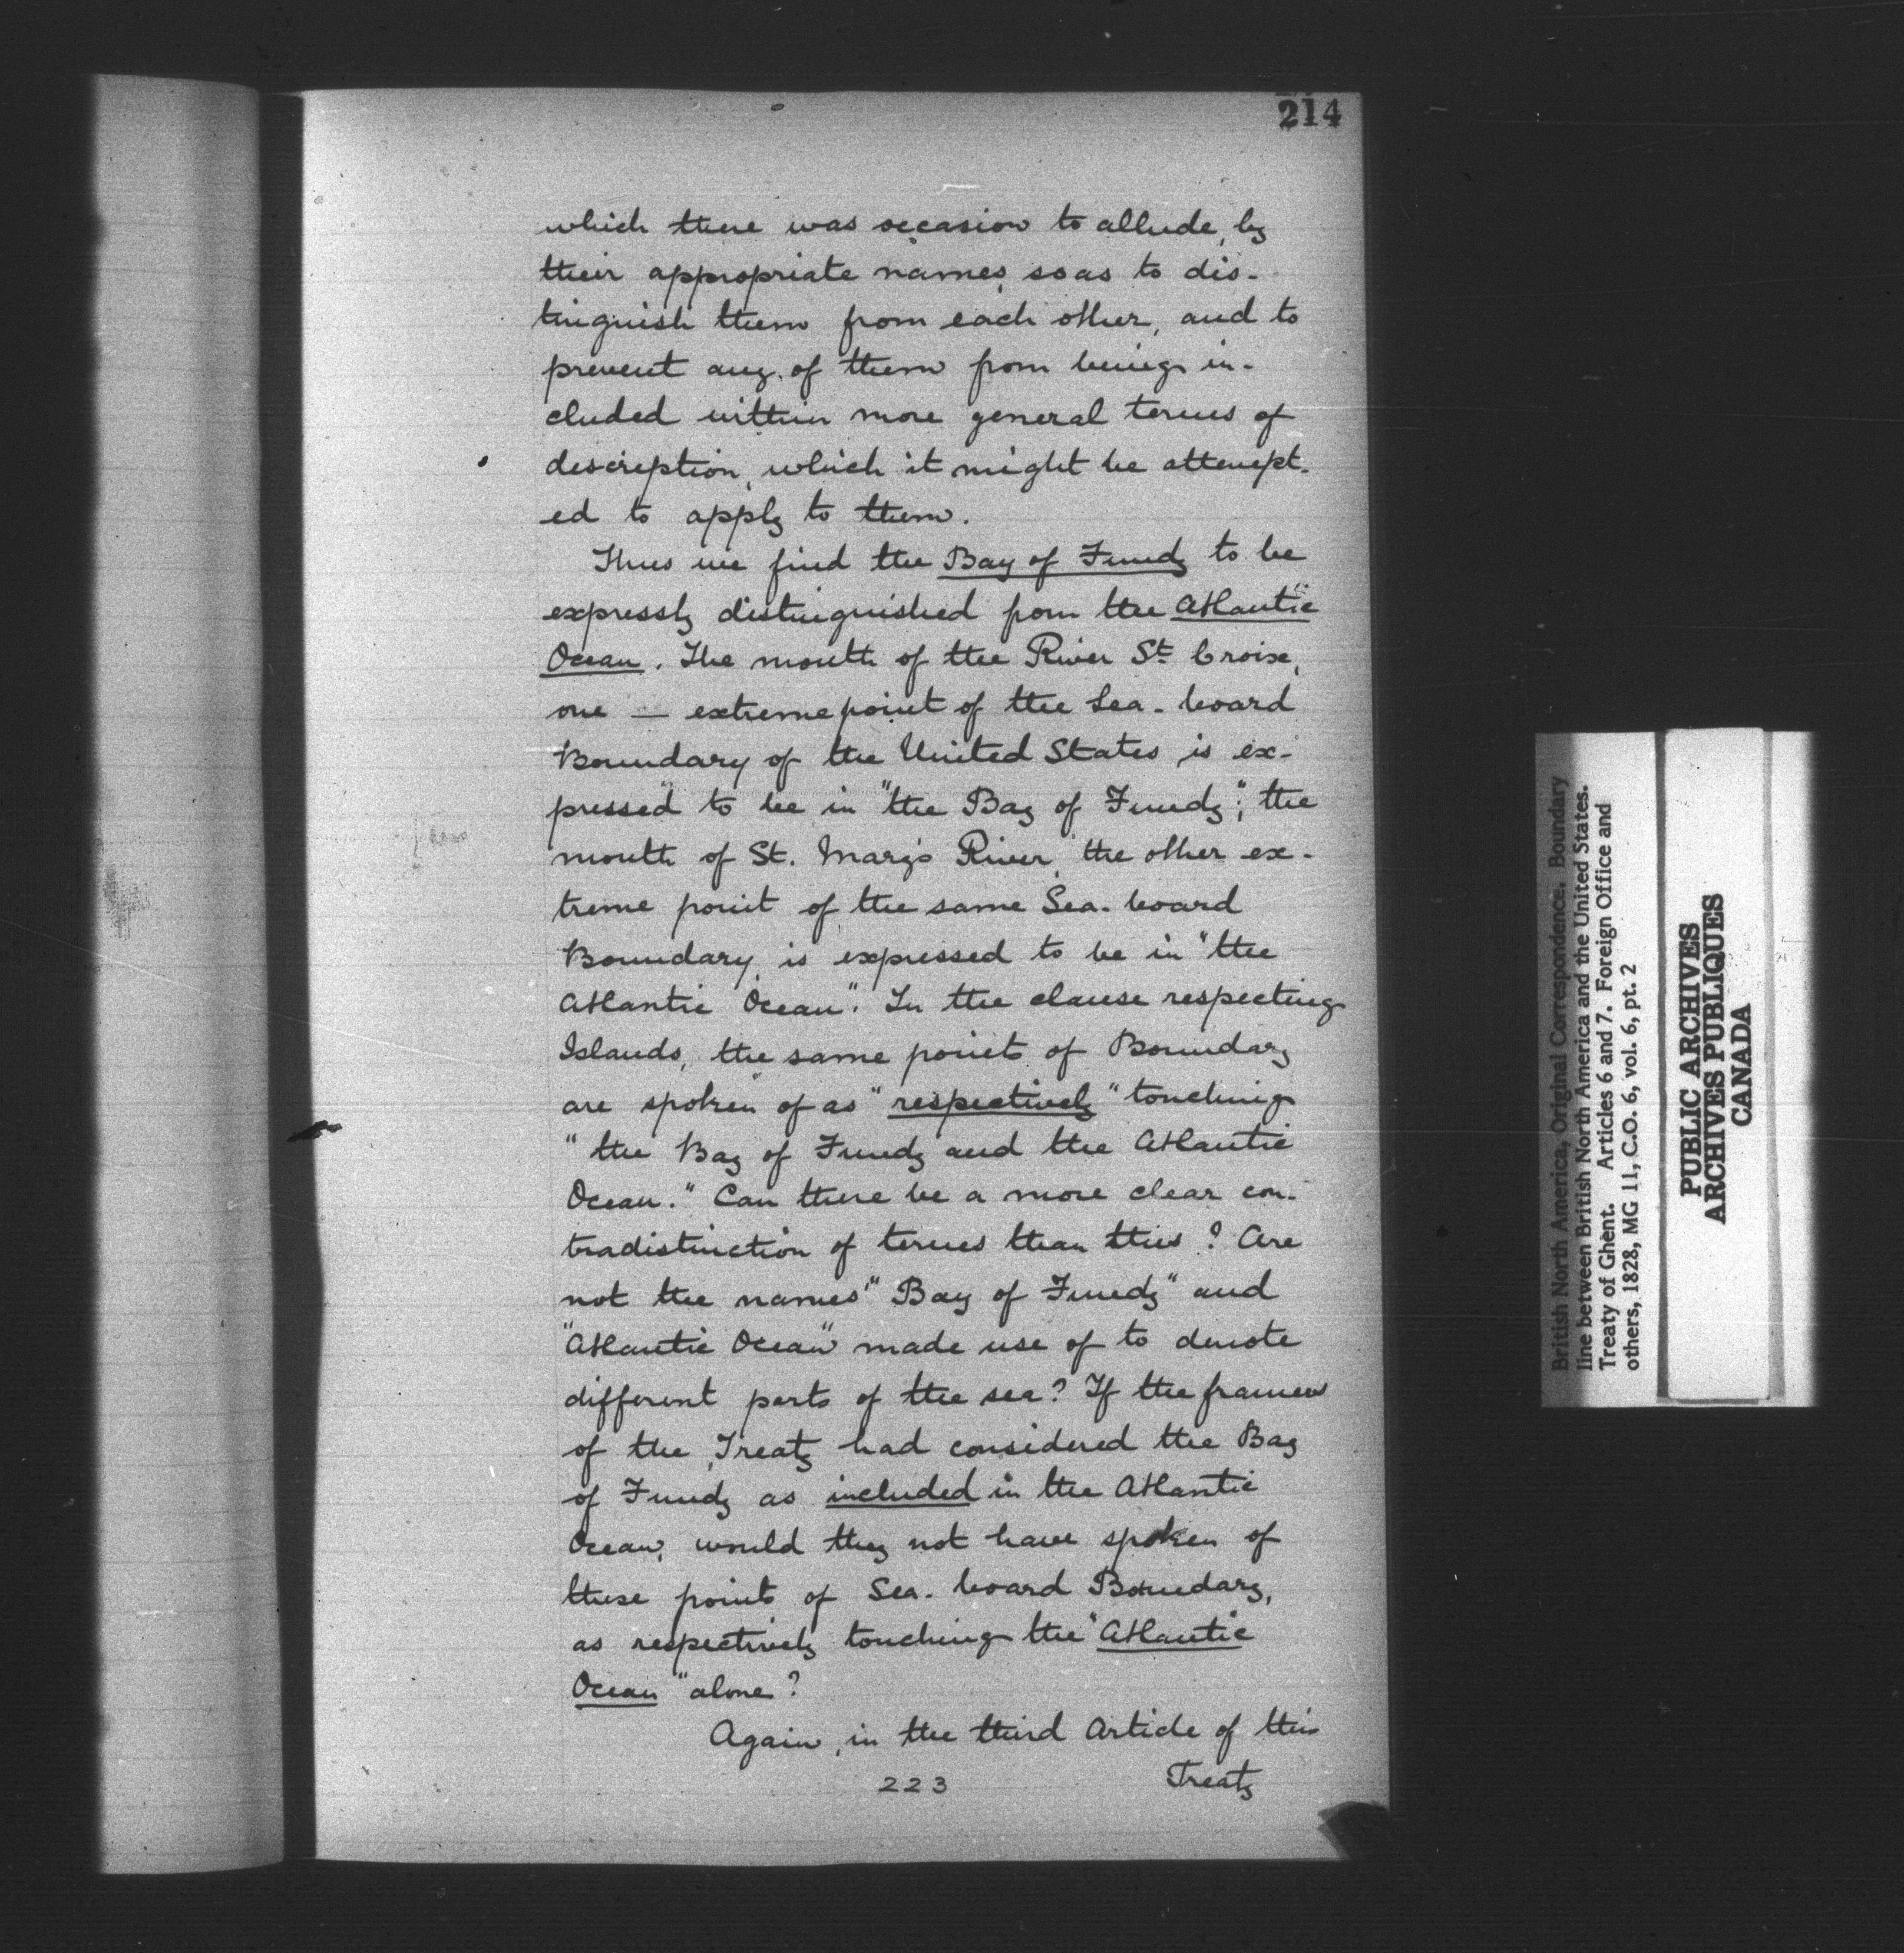 214
which there was occasion to allude, by
their appropriate names, so as to dis-
tinguish them from each other, and to
prevent any of them from being in-
cluded within more general terms of
description, which it might be attempt-
ed to apply to them.
Thus we find the Bay of Fundy to be
expressly distinguished from the Atlantic
Ocean. The mouth of the River St. Croix,
one — extreme point of the Sea-board
Boundary of the United States is ex-
pressed to be in "the Bay of Fundy"; the
mouth of St. Mary's River, the other ex-
treme point of the same Sea-board
Boundary, is expressed to be in "the
Atlantic Ocean". In the clause respecting
Islands, the same points of Boundary
are spoken of as "respectively" touching
"the Bay of Fundy and the Atlantic
Ocean." Can there be a more clear con-
tradistinction of terms than this? Are
not the names "Bay of Fundy" and
"Atlantic Ocean" made use of to denote
different parts of the sea? If the framers
of the Treaty had considered the Bay
of Fundy as included in the Atlantic
Ocean, would they not have spoken of
these points of Sea-board Boundary,
as respectively touching the "Atlantic
Ocean" alone?
Again, in the third Article of this
223 Treaty
British North America, Original Correspondence. Boundary
line between British North America and the United States.
Treaty of Ghent. Articles 6 and 7. Foreign Office and
others, 1828, MG 11, C.O. 6, vol. 6, pt. 2
PUBLIC ARCHIVES
ARCHIVES PUBLIQUES
CANADA